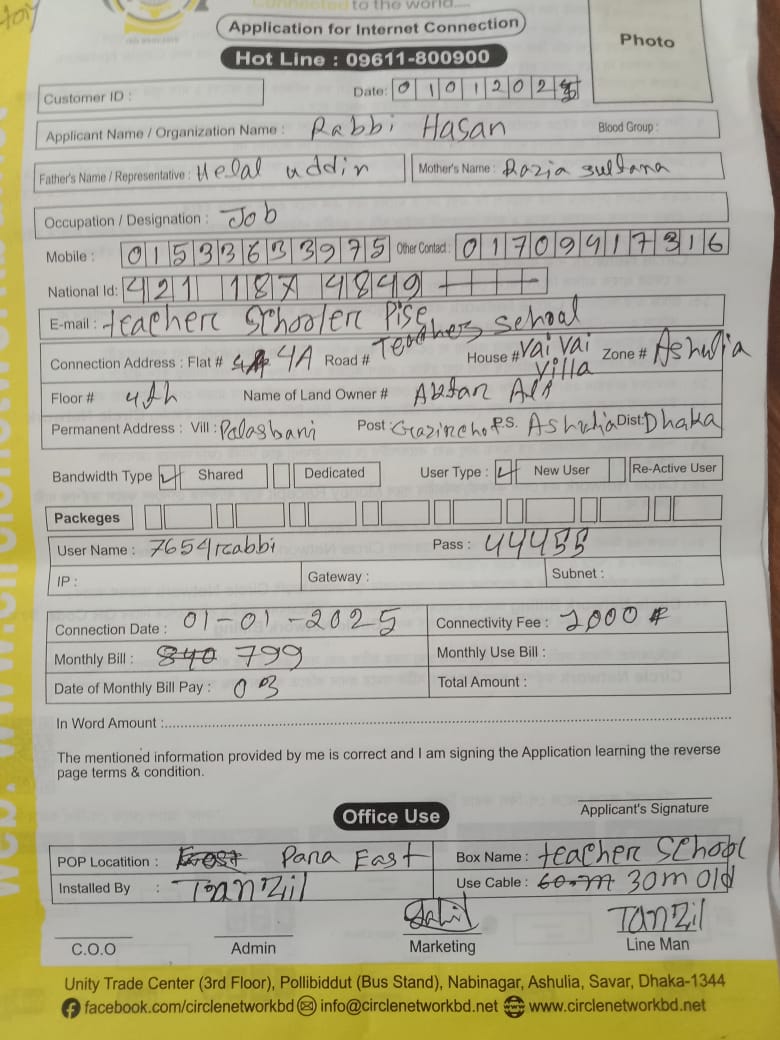 Connected to the world....
Application for Internet Connection
Hot Line : 09611-800900
Photo
Customer ID :
Date: 01012025
Applicant Name / Organization Name : Rabbi Hasan Blood Group :
Father's Name / Representative : Helal uddin Mother's Name : Razia Sultana
Occupation / Designation : Job
Mobile : 01533633975 Other Contact : 01709417316
National Id: 421 187 4849
E-mail : teacher Schooler Pise
Connection Address : Flat # 4A Road # Teacher School House # Vai Vai Villa Zone # Ashulia
Floor # 4th Name of Land Owner # Aktar Ali
Permanent Address : Vill : Palasbari Post : P.S. Ashulia Dist: Dhaka
Bandwidth Type Shared Dedicated User Type : New User Re-Active User
Packeges
User Name : 7654rabbi Pass : 44455
IP : Gateway : Subnet :
Connection Date : 01-01-2025 Connectivity Fee : 1000
Monthly Bill : 840 799 Monthly Use Bill :
Date of Monthly Bill Pay : 03 Total Amount :
In Word Amount :
The mentioned information provided by me is correct and I am signing the Application learning the reverse
page terms & condition.
Applicant's Signature
Office Use
POP Locatition : East Para East Box Name : teacher School
Installed By : Tanzil Use Cable : 60m 30m old
Tanzil
C.O.O Admin Marketing Line Man
Unity Trade Center (3rd Floor), Pollibiddut (Bus Stand), Nabinagar, Ashulia, Savar, Dhaka-1344
facebook.com/circlenetworkbd info@circlenetworkbd.net www.circlenetworkbd.net